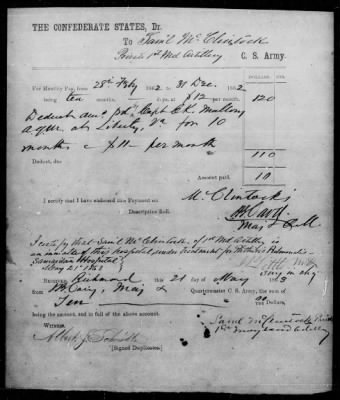 THE CONFEDERATE STATES, Dr.
To Saml McClintock
Private 1st Md Artillery C. S. Army.
DOLLARS. CTS.
For Monthly Pay, from 28th Feby 1862 to 31 Dec. 1862
being ten months days, at $12 per month. 120
Deduct amt pd. Capt C.K. Mallory
a.q.m. at Liberty, Va for 10
months @ $11- per month
110
Deduct, due
Amount paid, 10
I certify that I have endorsed this Payment on McClintock's
Descriptive Roll.
Maj & QM
I certify that Saml McClintock, of 1st Md Artillery is
an inmate of this hospital under treatment by
Samaritan Hospital
May 21st 1863
in chg
Received, Richmond this 21 day of May 1863
of Maj & Quartermaster C. S. Army, the sum of
Ten 00 Dollars,
being the amount, and in full of the above account.
Witness, Saml McClintock Private
Albert J Schmidt 1st Maryland Artillery
[Signed Duplicates.]